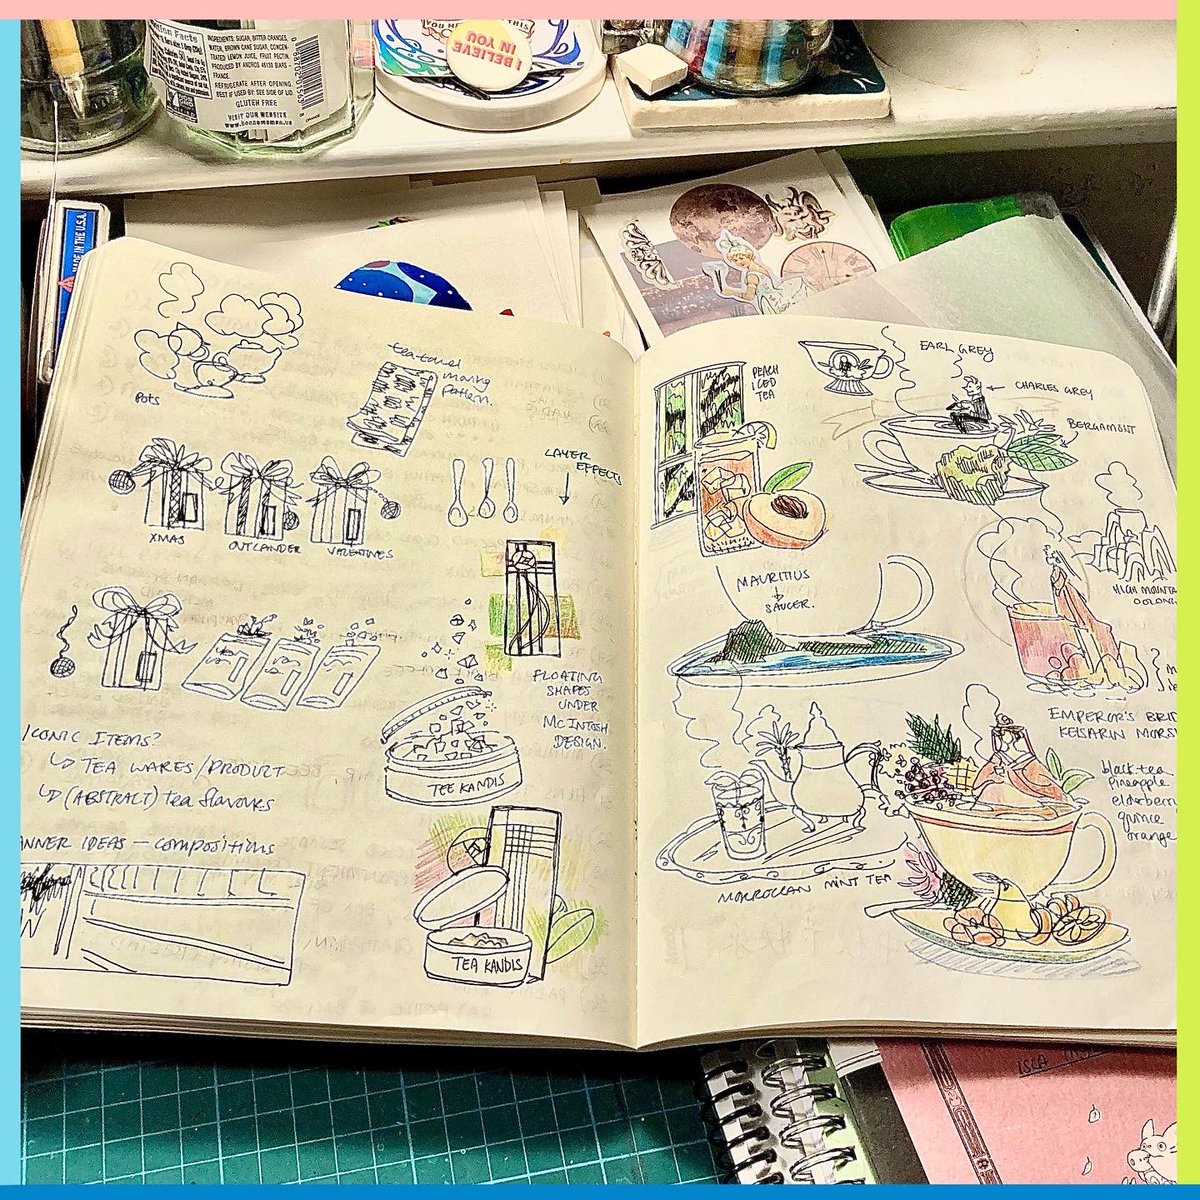 INGREDIENTS: SUGAR, BITTER ORANGES,
WATER, BROWN CANE SUGAR, CONCEN-
TRATED LEMON JUICE, FRUIT PECTIN.
PRODUCED BY ANDROS 46130 BIARS -
FRANCE.
REFRIGERATE AFTER OPENING.
BEST IF USED BY: SEE SIDE OF LID.
GLUTEN FREE
VISIT OUR WEBSITE
I BELIEVE
IN YOU
MADE IN THE U.S.A.
POTS
tea-towel
pattern.
LAYER
EFFECTS
XMAS
OUTLANDER
VALENTINES
FLOATING
SHAPES
UNDER
MCINTOSH
DESIGN.
ICONIC ITEMS?
TEA WARES/PRODUCT
(ABSTRACT) tea flavours
TEE KANDIS
ANNER IDEAS — compositions
TEA KANDIS
PEACH
ICED
TEA
EARL GREY
CHARLES GREY
BERGAMONT
MAURITIUS
SAUCER.
HIGH MOUNTA
OOLONG
EMPEROR'S BRID
KEISARIN MORSI
black tea
pineapple.
elderberry
quince
orange
MORROCCAN MINT TEA
ISLA